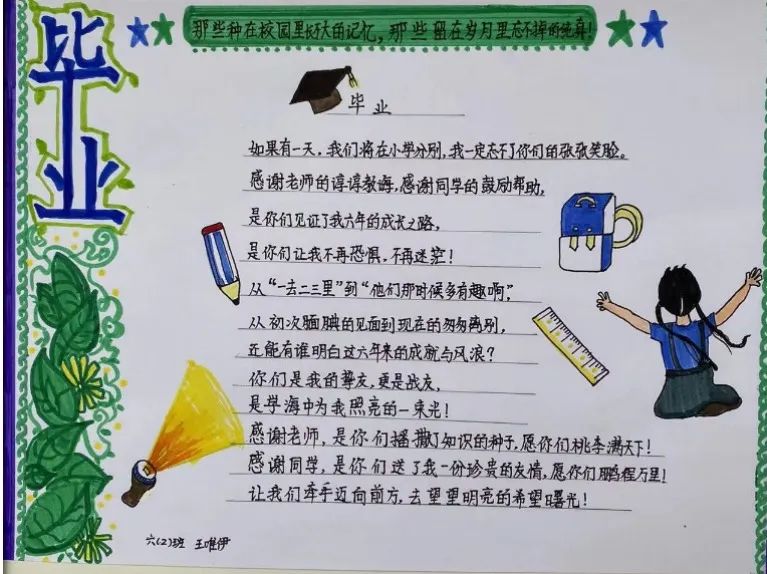 毕业
那些种在校园里长大的记忆，那些留在岁月里忘不掉的纯真！
毕业
如果有一天，我们将在小学分别，我一定忘不了你们的张张笑脸。
感谢老师的谆谆教诲，感谢同学的鼓励帮助，
是你们见证了我六年的成长之路，
是你们让我不再恐惧，不再迷茫！
从“一去二三里”到“他们那时候多有趣啊”，
从初次腼腆的见面到现在的匆匆离别，
还能有谁明白这六年来的成就与风浪？
你们是我的挚友，更是战友，
是学海中为我照亮的一束光！
感谢老师，是你们播撒了知识的种子，愿你们桃李满天下！
感谢同学，是你们送了我一份珍贵的友情，愿你们鹏程万里！
让我们牵手迈向前方，去望望明亮的希望曙光！
六(2)班 王唯伊